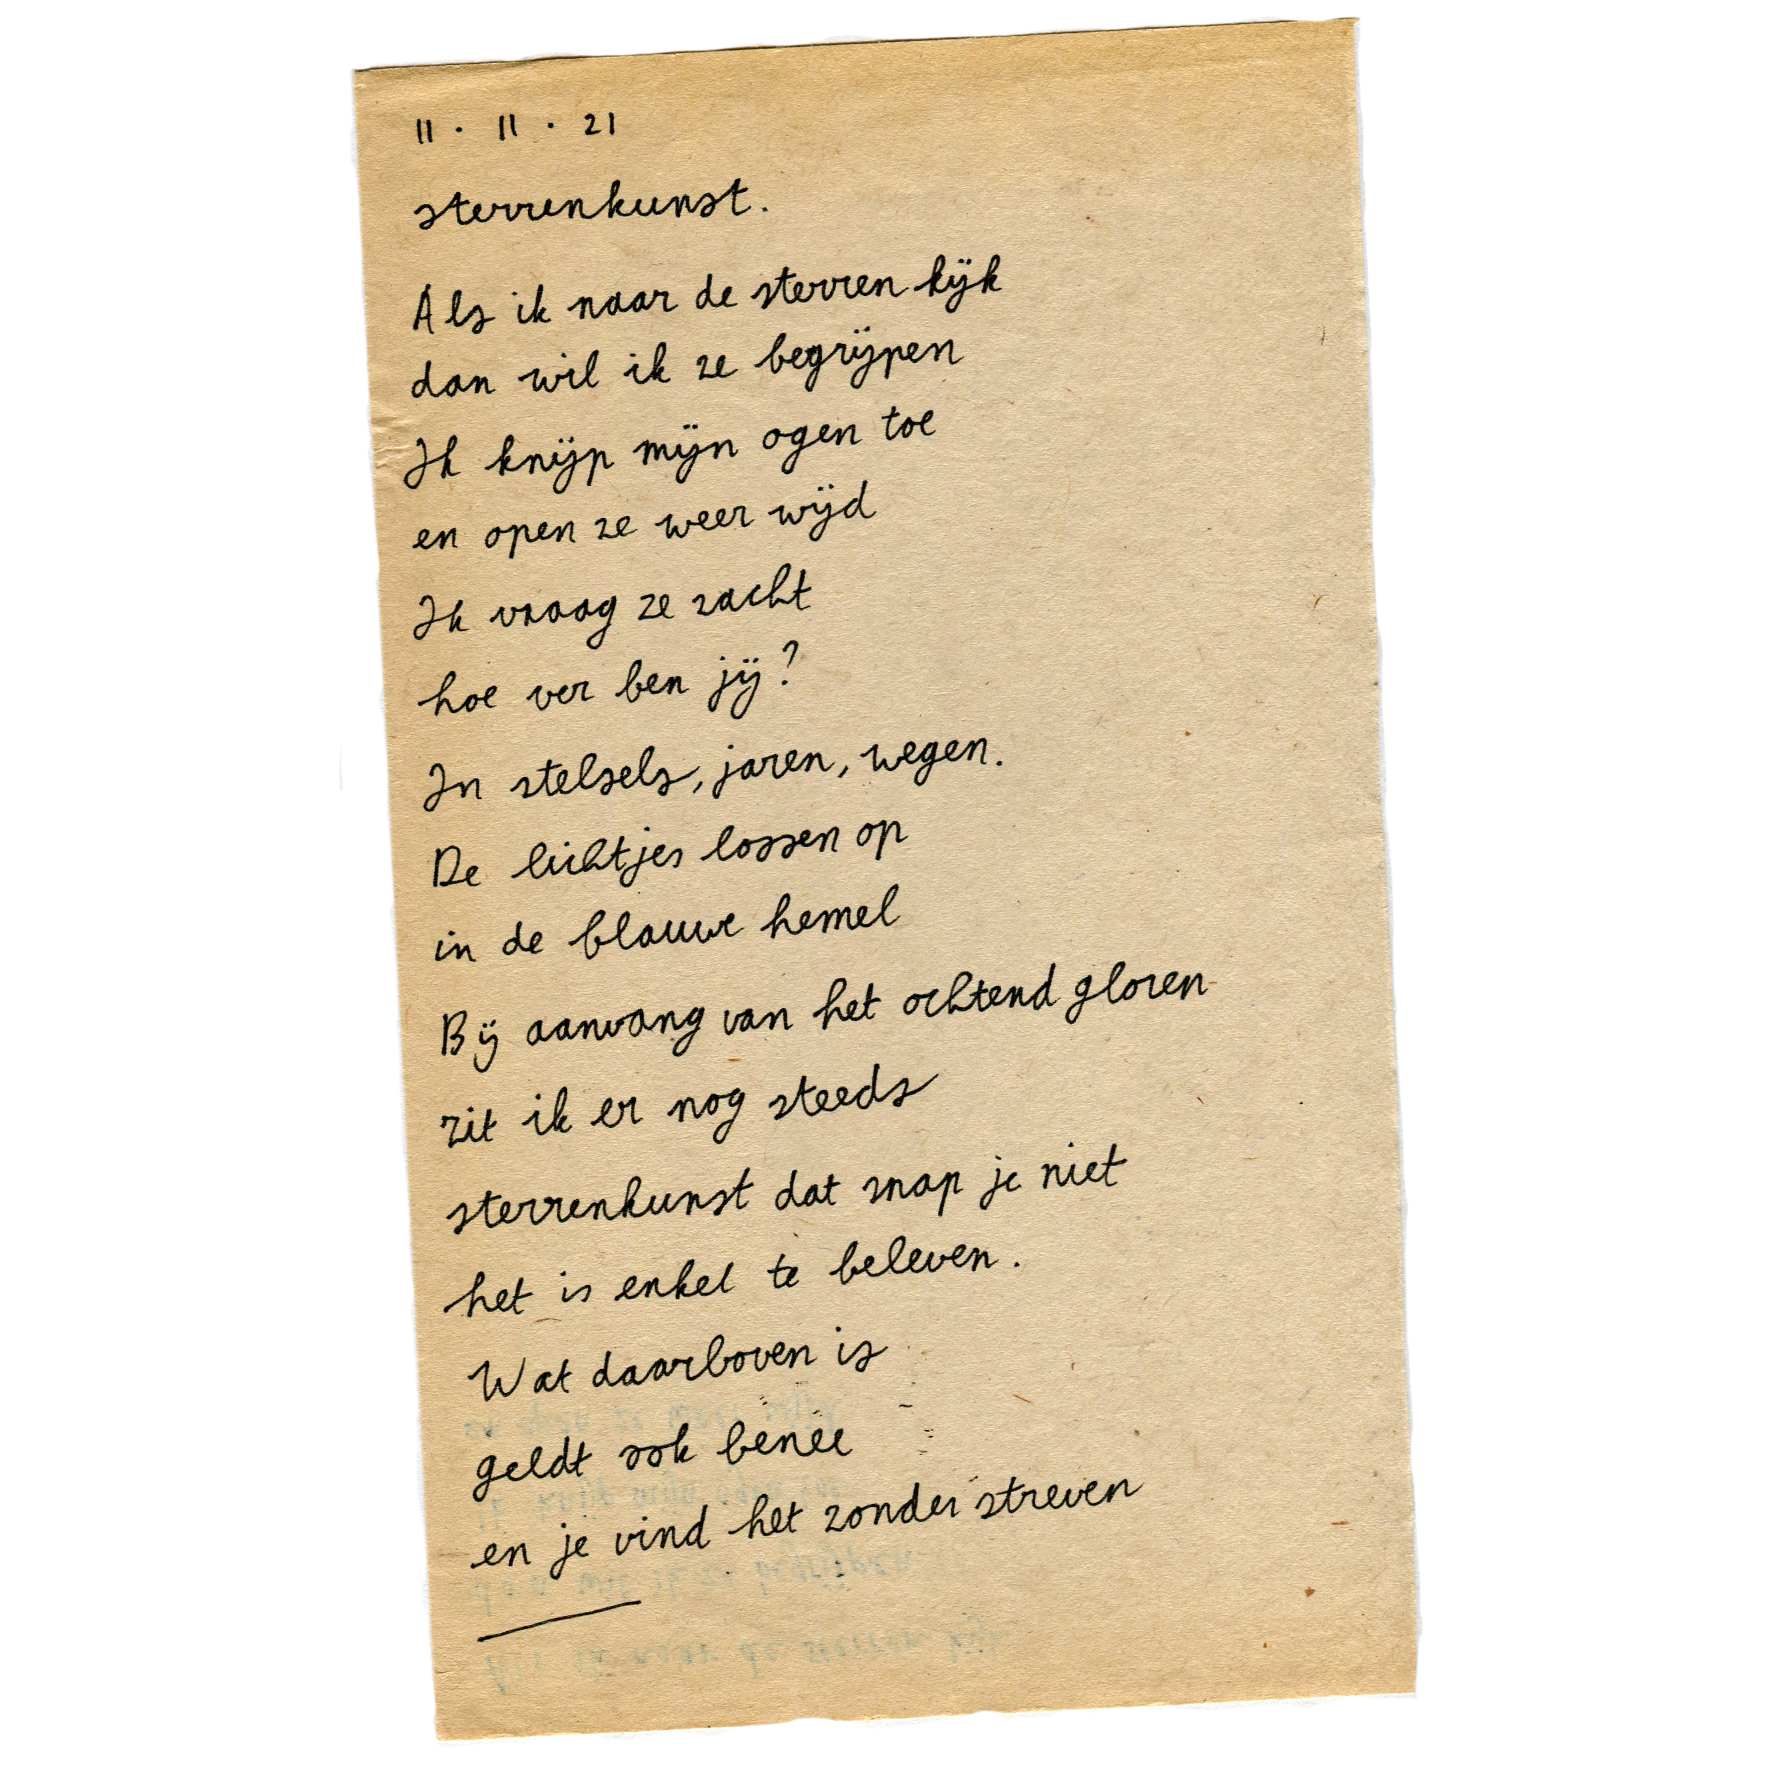 11 · 11 · 21
sterrenkunst.
Als ik naar de sterren kijk
dan wil ik ze begrijpen
Ik knijp mijn ogen toe
en open ze weer wijd
Ik vraag ze zacht
hoe ver ben jij?
In stelsels, jaren, wegen.
De lichtjes lossen op
in de blauwe hemel
Bij aanvang van het ochtend gloren
zit ik er nog steeds
sterrenkunst dat snap je niet
het is enkel te beleven.
Wat daarboven is
geldt ook benee
en je vind het zonder streven